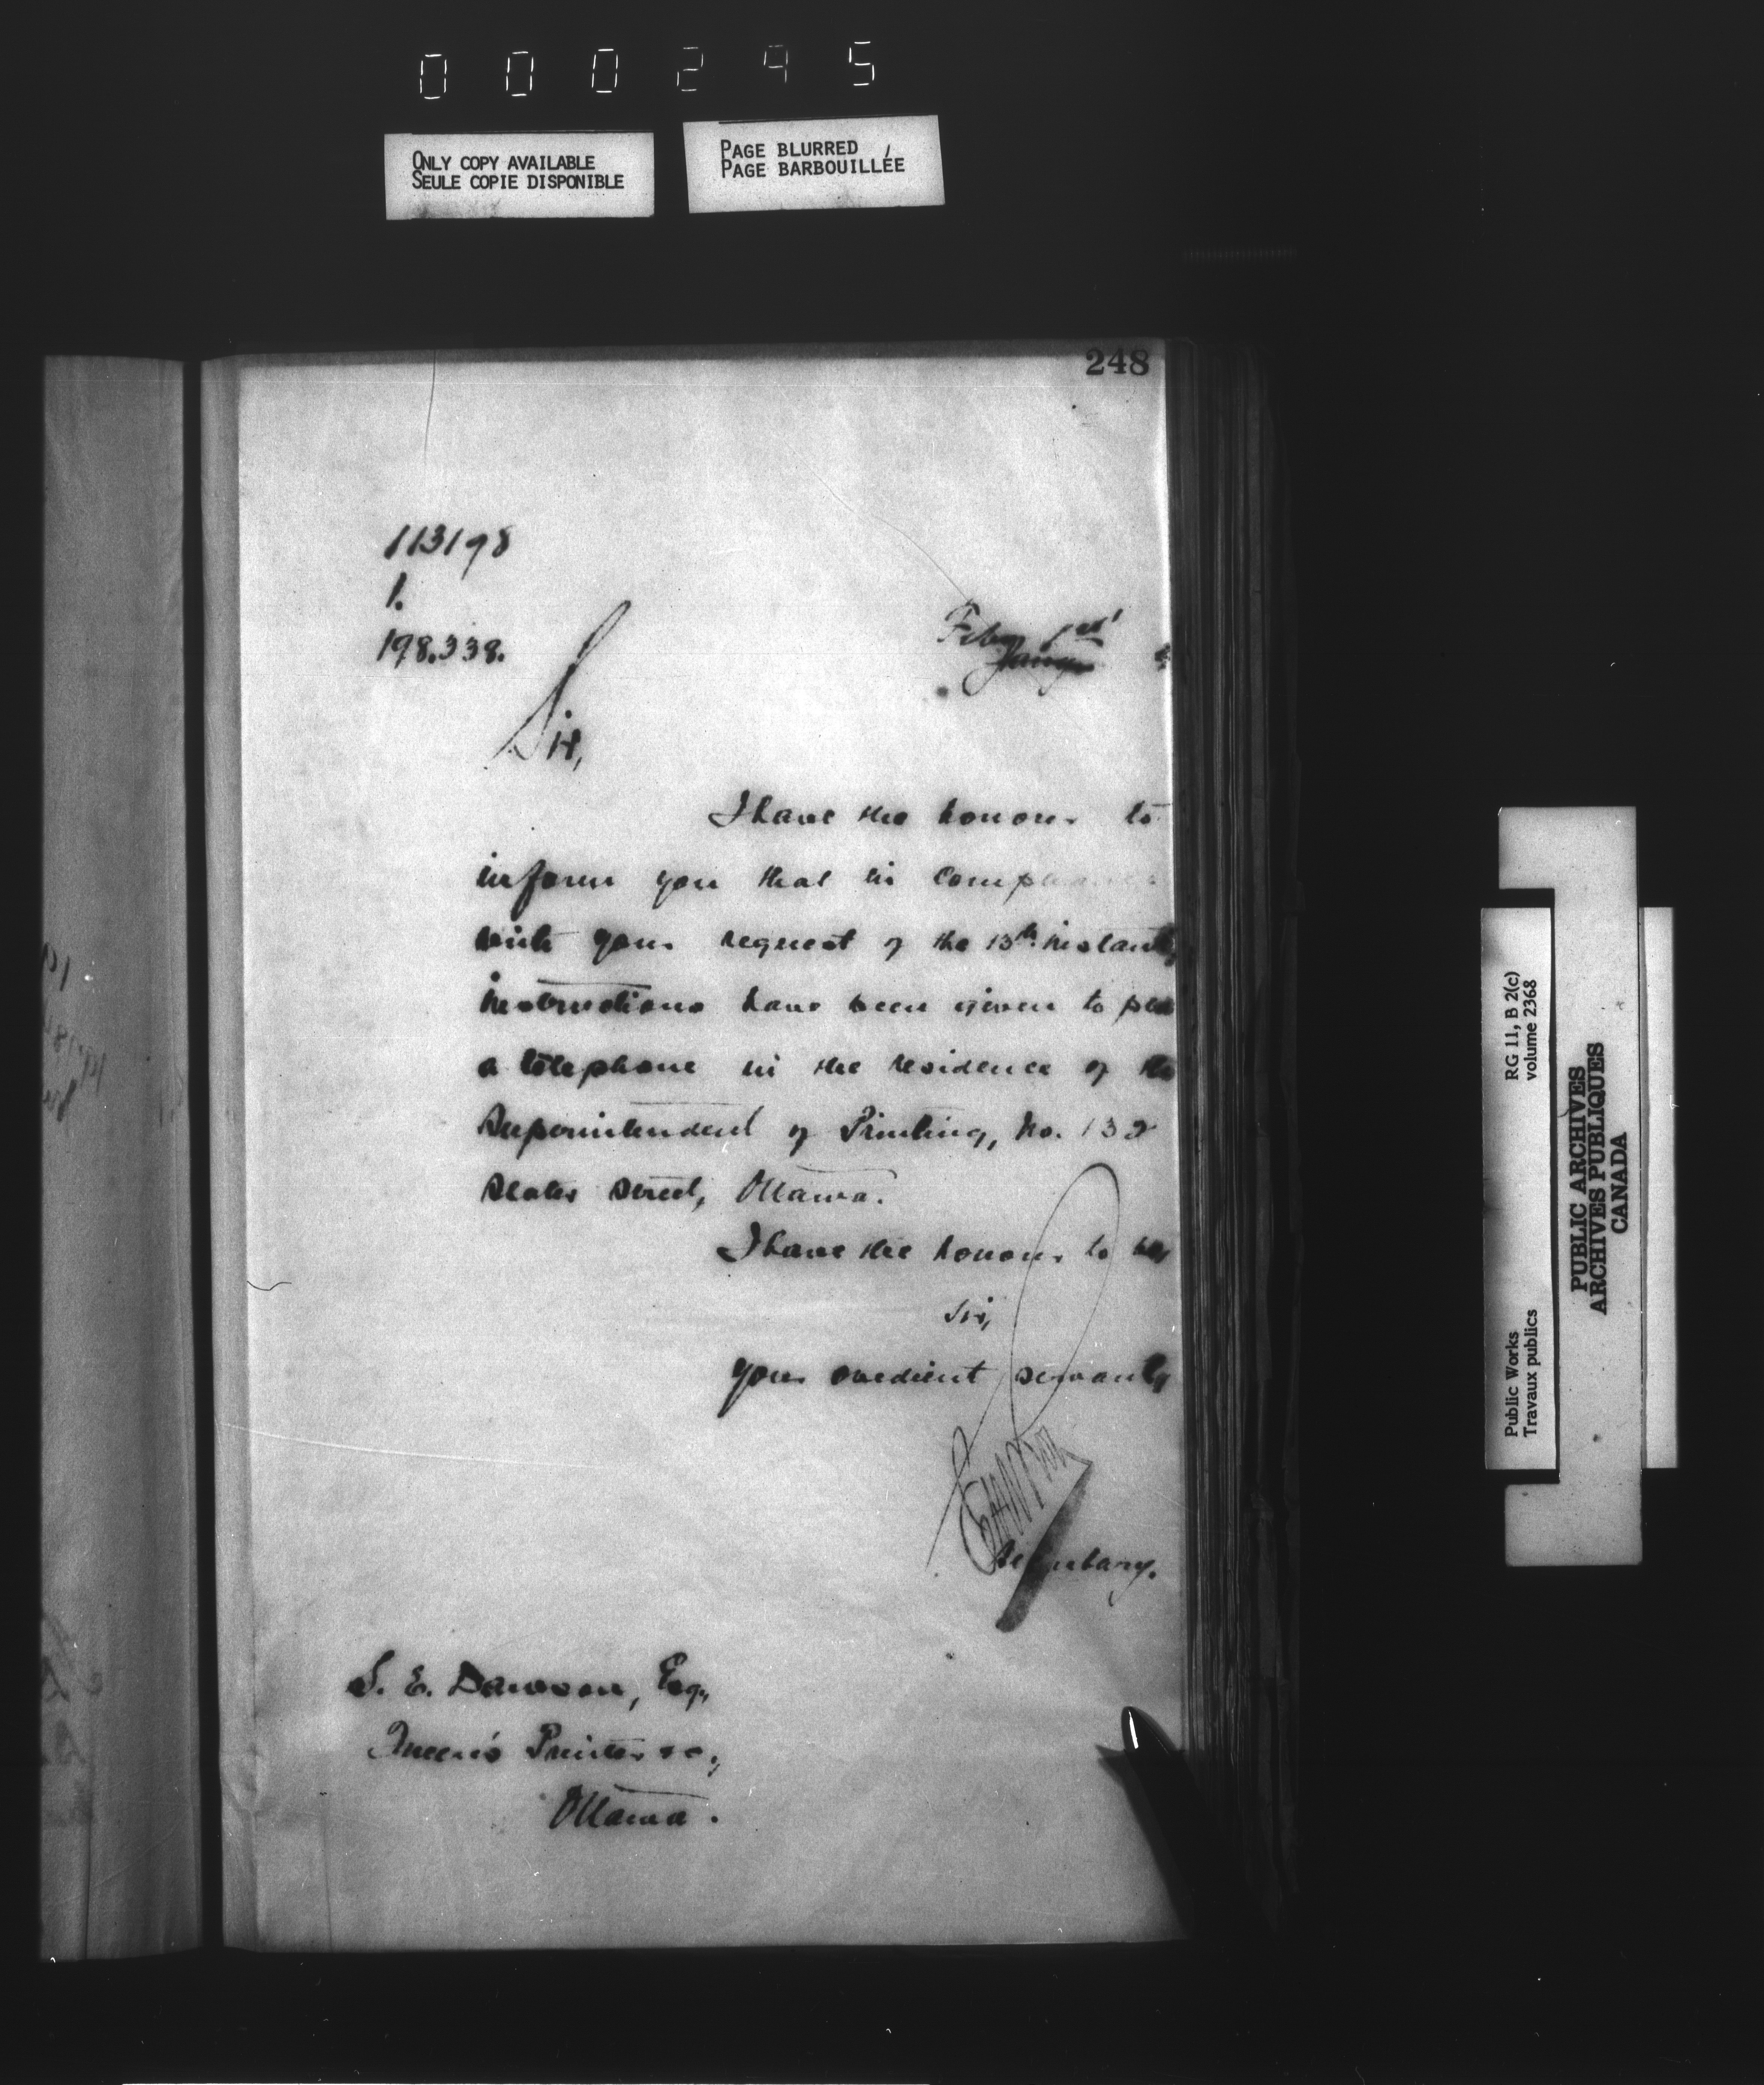 000295
ONLY COPY AVAILABLE
SEULE COPIE DISPONIBLE
PAGE BLURRED
PAGE BARBOUILLÉE
248
113198
1.
198.338.
Feby 1st
Sir,
I have the honour to
inform you that in compliance
with your request of the 13th instant,
instructions have been given to
a telephone in the residence of the
Superintendent of Printing, No. 132
Slater Street, Ottawa.
I have the honour to be,
Sir,
Your obedient servant,
Secretary.
S. E. Dawson, Esq.,
Queen's Printer &c.,
Ottawa.
RG 11, B 2(c)
volume 2368
Public Works
Travaux publics
PUBLIC ARCHIVES
ARCHIVES PUBLIQUES
CANADA